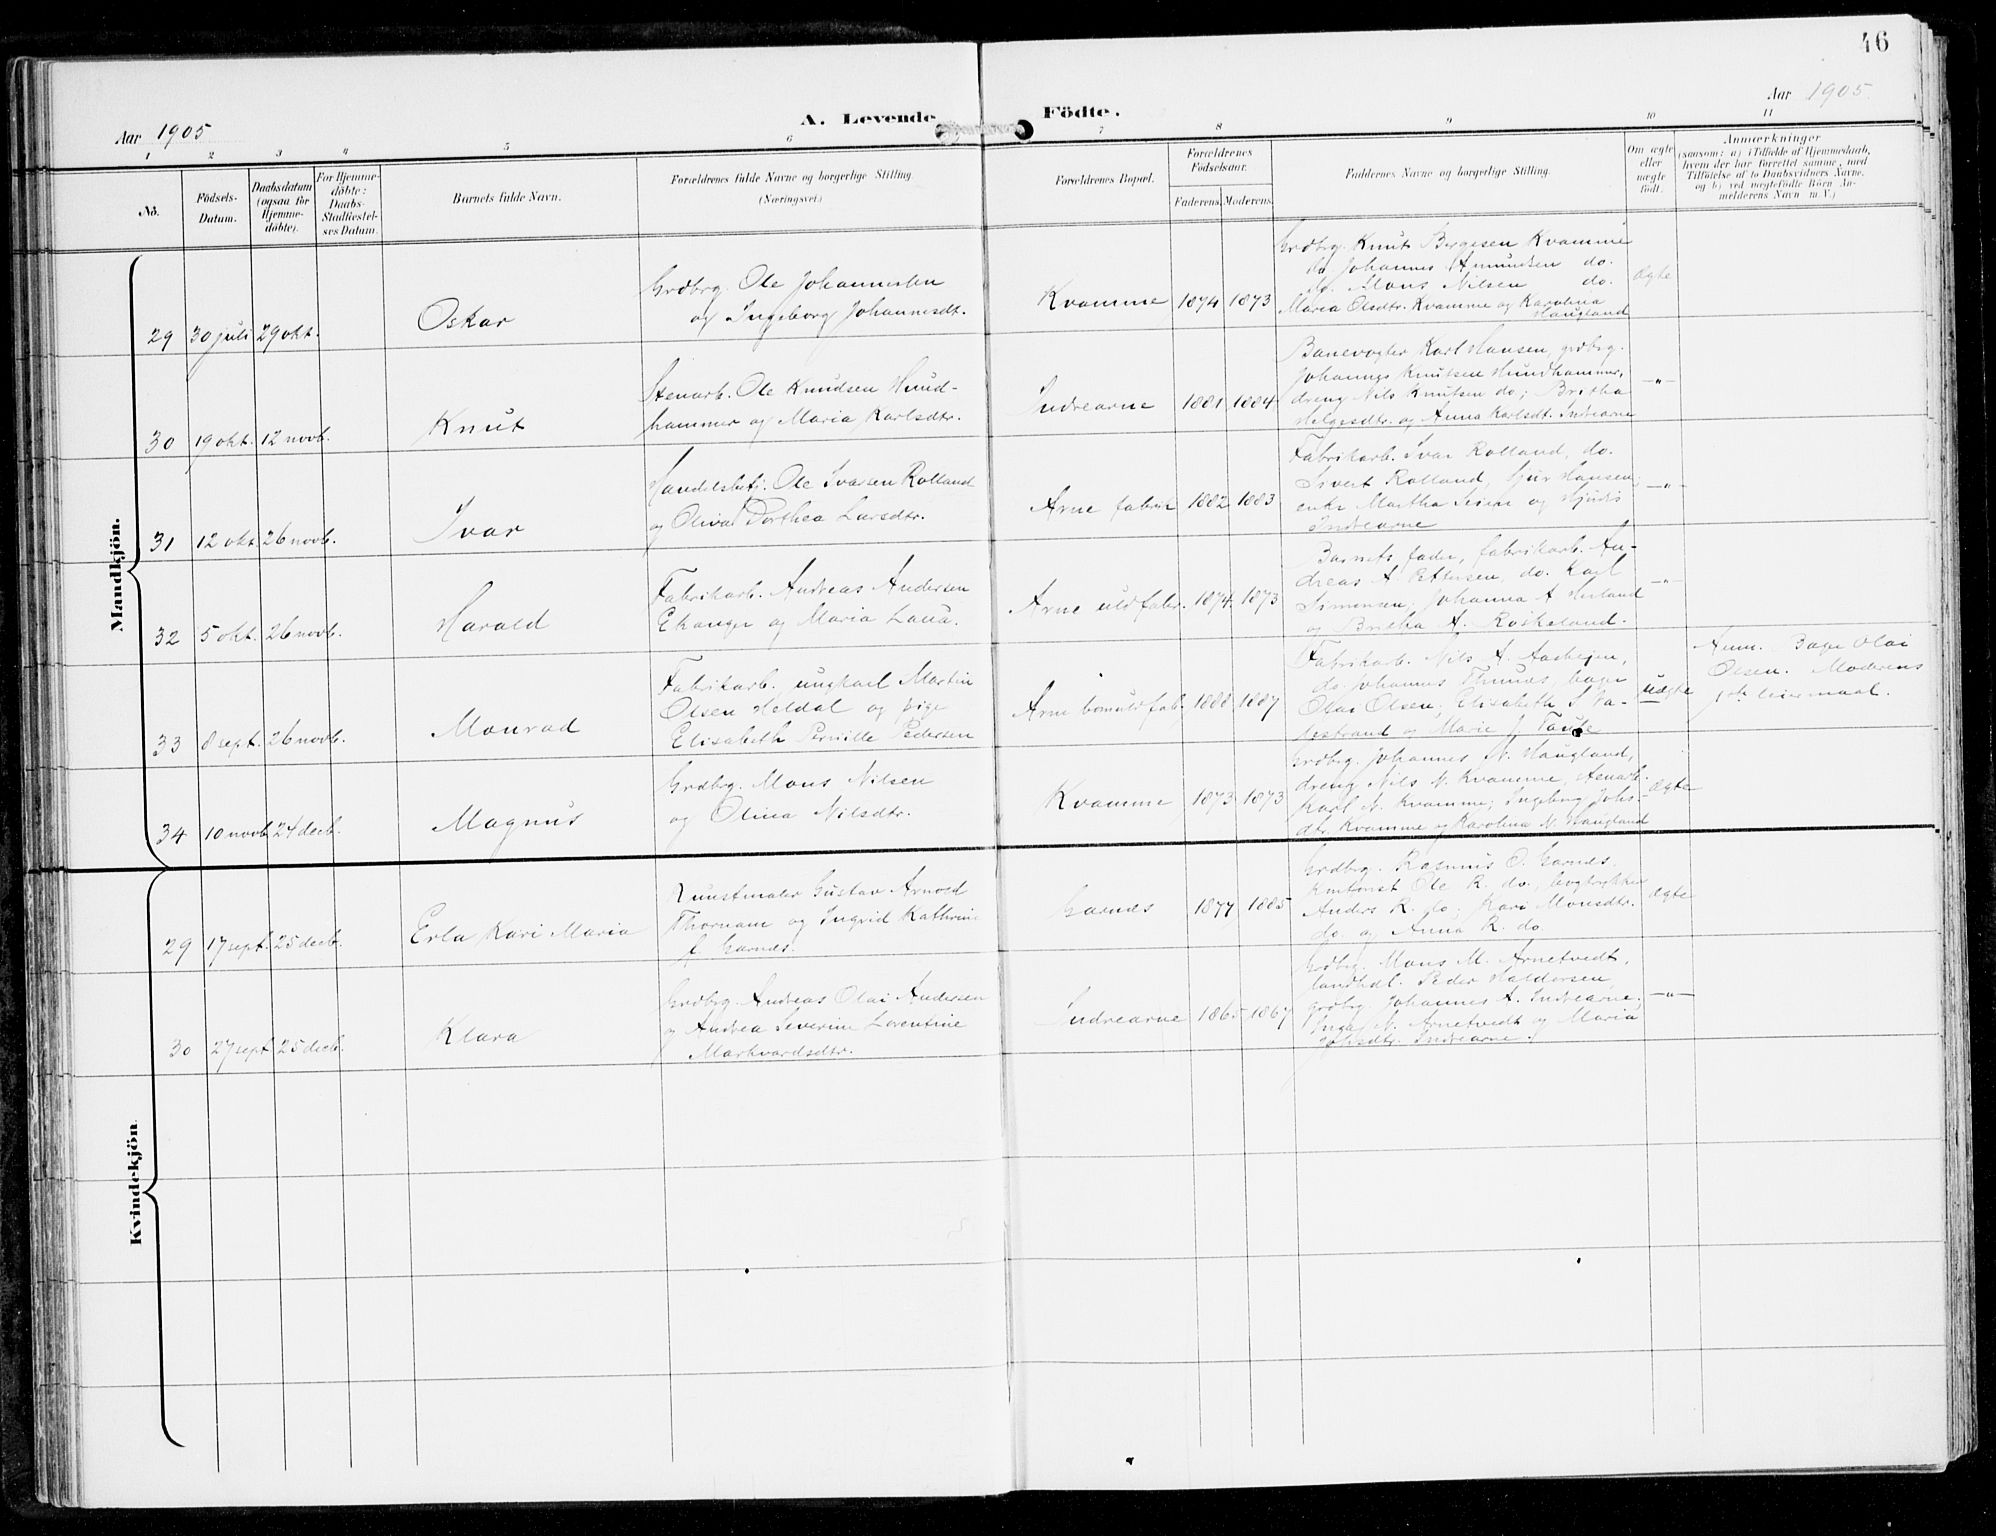 46
Aar 1905
A. Levende
Födte.
Aar 1905.
1 2 3 4 5 6 7 8 9 10 11
No.
Födsels-
Datum.
Daabsdatum
(ogsaa for
Hjemme-
döbte).
For Hjemme-
döbte:
Daabs-
Stadfæstel-
ses Datum.
Barnets fulde Navn.
Forældrenes fulde Navne og borgerlige Stilling.
(Næringsvei.)
Forældrenes Bopæl.
Forældrenes
Födselsaar.
Faderens. Moderens.
Faddernes Navne og borgerlige Stilling.
Om ægte
eller
uægte
födt.
Anmærkninger
(saasom: a) i Tilfælde af Hjemmedaab,
hvem der har forrettet samme, med
Tilföielse af to Daabsvidners Navne,
og b) ved uægtefödte Börn An-
melderens Navn m. V.)
Mandkjön.
29 30 juli 29 okt.
Oskar
Grdbrg. Ole Johannessen
og Ingeborg Johannesdt.
Kvamme 1874 1873
Grdbrg. Knut Børgesen Kvamme
do. Johannes Amundsen do.
do. Mons Nilsen do.
Maria Olsdtr. Kvamme og Karolina
Haugland
ægte
30 19 okt. 12 novb.
Knut
Stenarb. Ole Knudsen Hund-
hammer og Maria Karlsdtr.
Indrearne 1881 1884
Banevogter Karl Hansen, grdbrg.
Johannes Knutsen Hundhammer,
dreng Nils Knutsen do; Britha
Helgesdtr. og Anna Karlsdt. Indrearne
—„—
31 12 okt. 26 novb.
Ivar
Handelsbetj. Ole Ivarsen Rolland
og Oliva Dorthea Larsdtr.
Arne fabrik 1882 1883
Fabrikarb. Ivar Rolland, do.
Sivert Rolland, Sjur Hansen;
enke Martha og
Indrearne
—„—
32 5 okt. 26 novb.
Harald
Fabrikarb. Andreas Andersen
Ekanger og Maria
Arne uldfabr. 1874 1873
Barnets fader, fabrikarb. An-
dreas A. Pettersen, do. Karl
Simonsen; Johanna A. Herland
og Britha A. Røskeland.
—„—
33 8 sept. 26 novb.
Monrad
Fabrikarb. ungkarl Martin
Olsen Heldal og pige
Elisabeth Pernille Pedersen
Arne bomuldfab. 1888 1887
Fabrikarb. Nils A.
do. Johannes bager
Olai Olsen; Elisabeth S. Va-
lestrand og Marie J.
uægte
Anm. Bager Olai
Olsen. Moderens
1ste leiermaal.
34 10 novb. 24 decb.
Magnus
Grdbrg. Mons Nilsen
og Olina Nilsdtr.
Kvamme 1873 1873
Grdbrg. Johannes N. Haugland,
dreng Nils N. Kvamme, stenarb.
Karl N. Kvamme; Ingeborg Johs-
dtr. Kvamme og Karolina N. Haugland
ægte
Kvindekjön.
29 17 sept. 25 decb.
Erla Kari Maria
Kunstmaler Gustav Arnold
Thornam og Ingrid Kathrine
f. Garnes.
Garnes 1877 1885
Grdbrg. Rasmus O. Garnes,
kontorist Ole R. do., bogtrykker
Anders R. do; Kari Monsdtr.
do. og Anna R. do.
ægte
30 27 sept. 25 decb.
Klara
Grdbrg. Andreas Olai Andersen
og Andrea Severine Lorentine
Markvardsdtr.
Indrearne 1865 1867
Grdbrg. Mons M. Arnetvedt,
landhdl. Peder Haldorsen,
grdbrg. Johannes A. Indrearne.
Inga N. Arnetvedt og Maria
Johsdtr. Indrearne.
—„—